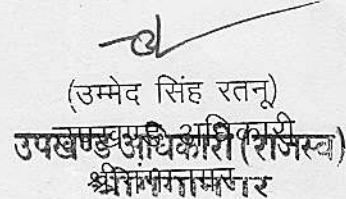 (उम्मेद सिंह रतनू)
उपखण्ड अधिकारी
उपखण्ड अधिकारी (राजस्व)
श्रीगंगानगर